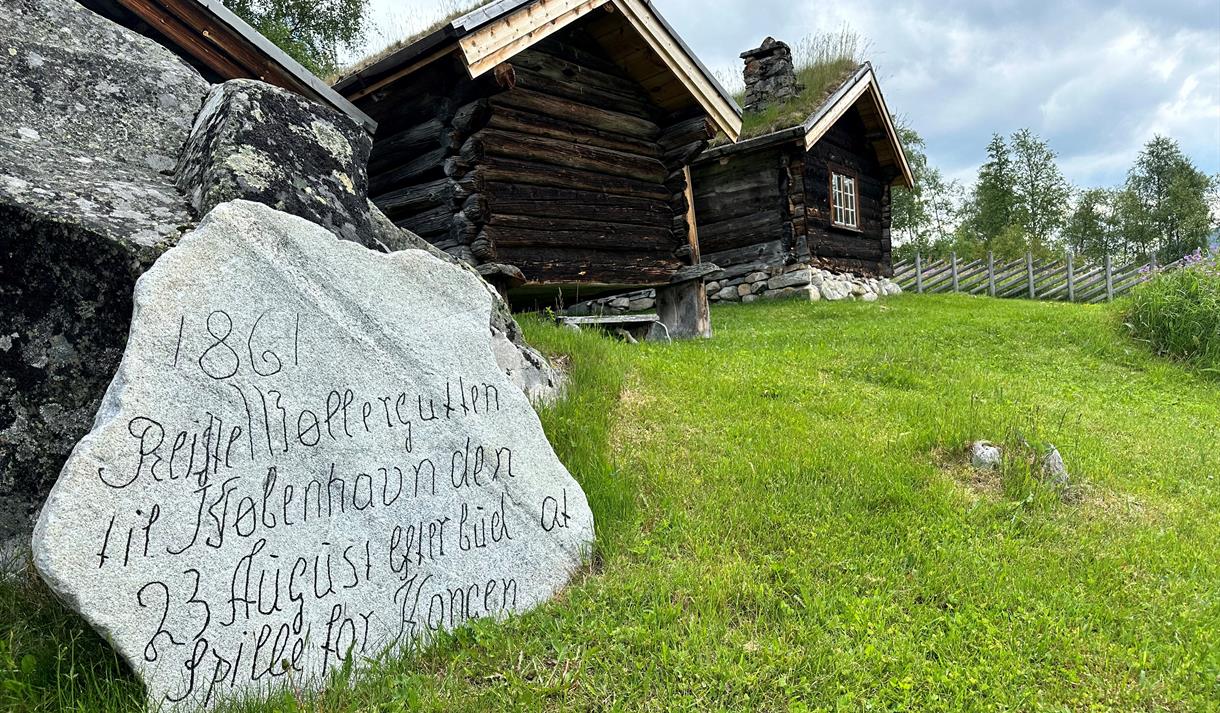 1861
Reiste Møllergutten
til København den
23 August efter bud at
Spille for Kongen